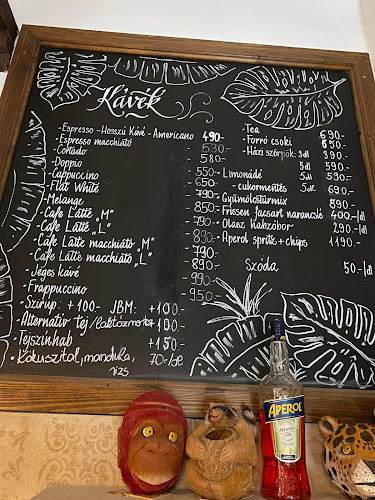 Kávék
- Espresso - Hosszú Kávé - Americano 490.-
- Espresso macchiato 530.-
- Cortado 580.-
- Doppio
- Cappuccino 550.-
- Flat White 650.-
- Melange 790.-
- Cafe Látte „M” 850.-
- Cafe Látte „L” 790.-
- Cafe Látte macchiato „M” 890.-
- Cafe Látte macchiato „L” 790.-
- Jeges kávé 890.-
- Frappuccino 990.-
950.-
- Szirup: +100.- JBM: +100.-
- Alternatív tej /laktózmentes +100.-
- Tejszínhab +150.-
- Kókusztej, mandula, 70.-/dl
rizs
- Tea 690.-
- Forró csoki 650.-
- Házi szörpök: 3dl 390.-
5dl 590.-
- Limonádé 3dl 590.-
- cukormentés 5dl 690.-
- Gyümölcsturmix 890.-
- Frissen facsart narancslé 400.-/dl
- Olasz habzóbor 290.-/dl
- Aperol spritz + chips 1190.-
Szóda 50.-/dl
APEROL